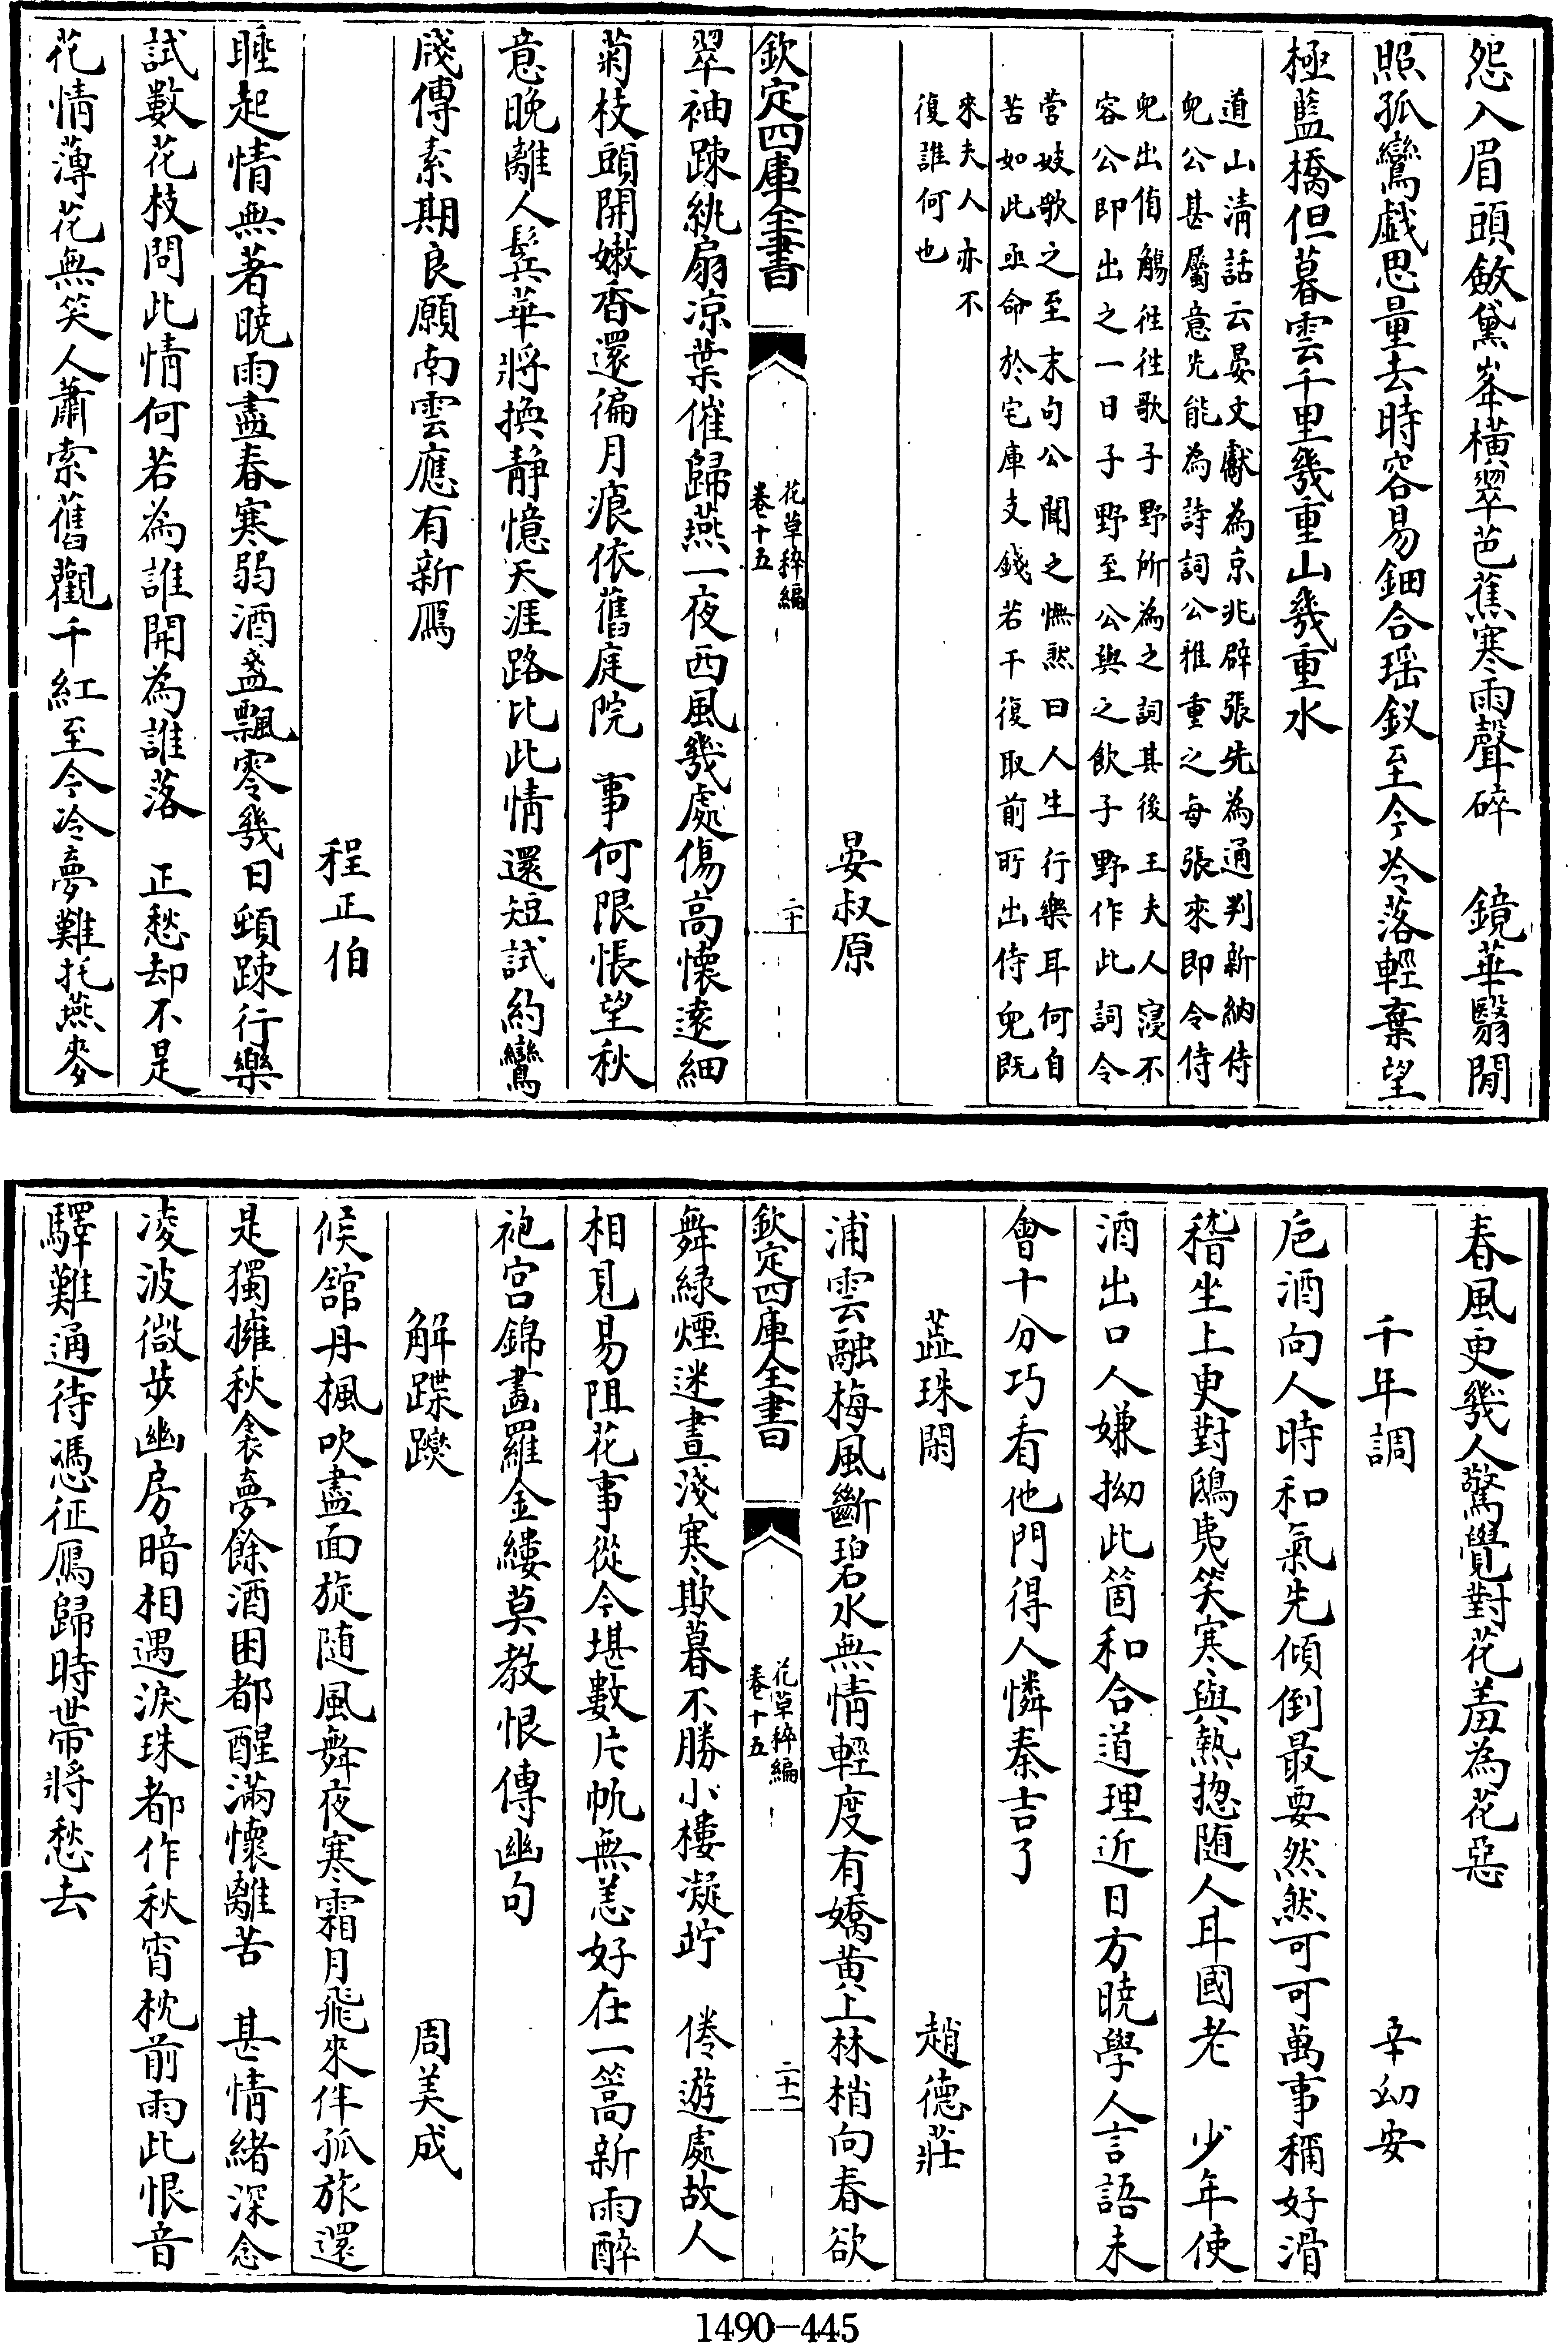 怨入眉頭斂黛峯横翠芭蕉寒雨聲碎　鏡華翳閒
照孤鸞戯思量去時容易鈿合瑶釵至今冷落輕棄望
極藍橋但暮雲千里幾重山幾重水
道山清話云晏文獻為京兆辟張先為通判新納侍
兒公甚屬意先能為詩詞公雅重之每張來即令侍
兒出侑觴徃徃歌子野所為之詞其後王夫人寖不
容公即出之一日子野至公與之飲子野作此詞令
營妓歌之至末句公聞之憮然曰人生行樂耳何自
苦如此亟命於宅庫支錢若干復取前所出侍兒既
來夫人亦不
復誰何也
晏叔原
欽定四庫全書
花草稡編
卷十五
二十
翠袖踈紈扇凉葉催歸燕一夜西風幾處傷高懷遠細
菊枝頭開嫩香還徧月痕依舊庭院　事何限悵望秋
意晚離人鬂華將換静憶天涯路比此情還短試約鸞
牋傳素期良願南雲應有新鴈
程正伯
睡起情無著曉雨盡春寒弱酒盞飄零幾日頓踈行樂
試數花枝問此情何若為誰開為誰落　正愁却不是
花情薄花無笑人蕭索舊觀千紅至今冷夢難托燕麥
春風更幾人驚覺對花羞為花惡
千年調
辛幼安
巵酒向人時和氣先傾倒最要然然可可萬事稱好滑
稽坐上更對鴟夷笑寒與熱揔随人耳國老　少年使
酒出口人嫌拗此箇和合道理近日方曉學人言語未
會十分巧看他門得人憐秦吉了
蕋珠閑
趙德莊
浦雲融梅風斷碧水無情輕度有嬌黄上林梢向春欲
欽定四庫全書
花草稡編
卷十五
二十一
舞緑煙迷晝淺寒欺暮不勝小樓凝竚　倦遊處故人
相見易阻花事從今堪數片帆無恙好在一篙新雨醉
袍宫錦畫羅金縷莫教恨傳幽句
解蹀躞
周美成
候舘丹楓吹盡面旋随風舞夜寒霜月飛來伴孤旅還
是獨擁秋衾夢餘酒困都醒滿懷離苦　甚情緒深念
凌波微步幽房暗相遇淚珠都作秋宵枕前雨此恨音
驛難通待憑征鴈歸時帶將愁去
1490-445